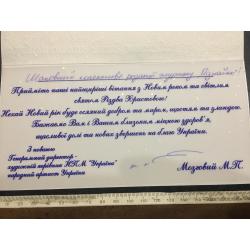 Прийміть наші найщиріші вітання з Новим роком та світлим
святом Різдва Христового!
Нехай Новий рік буде осяяний добром та миром, щастям та злагодою.
Бажаємо Вам і Вашим близьким міцного здоров'я,
щасливої долі та нових звершень на благо України.
З повагою
Генеральний директор -
художній керівник НПМ "Україна"
народний артист України
Мозговий М.П.